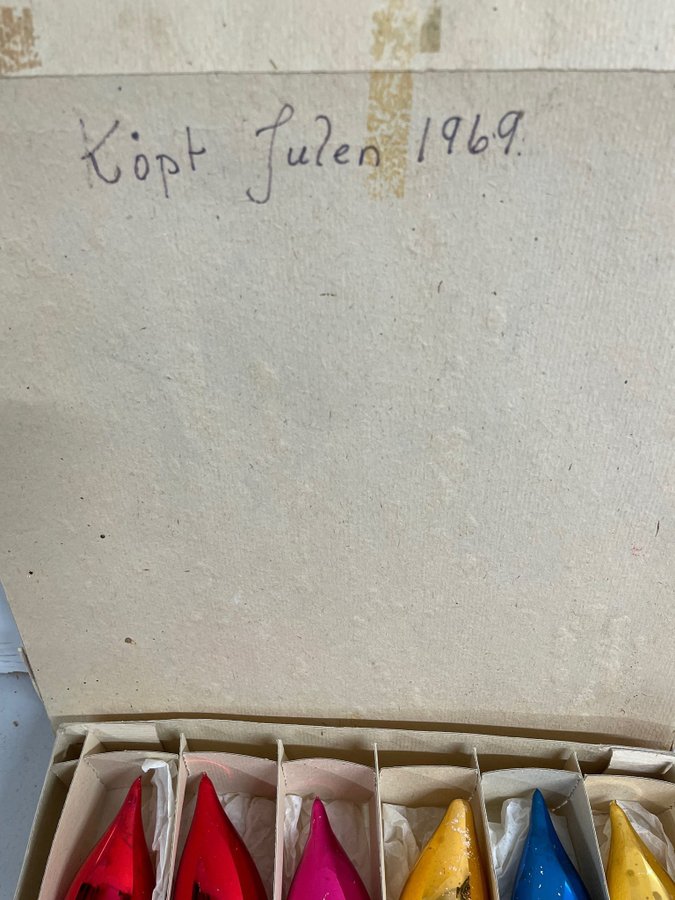 Köpt Julen 1969.